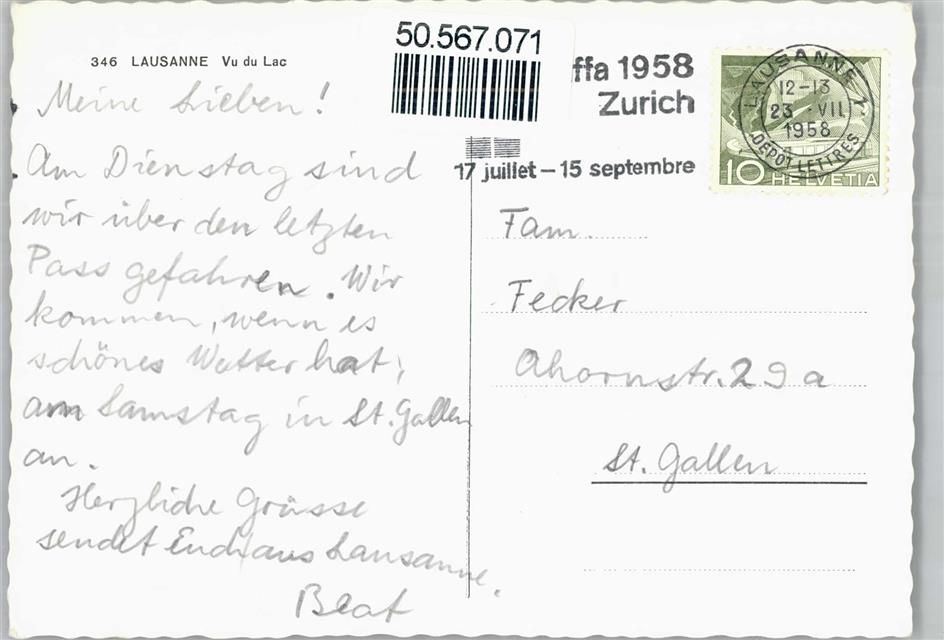 346 LAUSANNE Vu du Lac
50.567.071
ffa 1958
Zurich
17 juillet – 15 septembre
LAUSANNE 1
12-13
23.VII
1958
DEPOT LETTRES
10 HELVETIA
Meine Lieben!
Am Dienstag sind
wir über den letzten
Pass gefahren. Wir
kommen, wenn es
schönes Wetter hat,
am Samstag in St. Gallen
an.
Herzliche Grüsse
sendet Euch aus Lausanne.
Beat
Fam.
Fecker
Ahornstr. 29a
St. Gallen